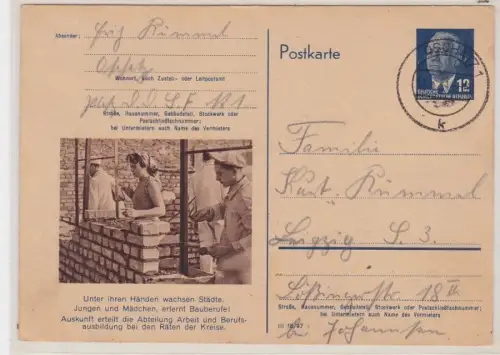 Absender:
Kümmel
Wohnort, auch Zustell- oder Leitpostamt
Straße, Hausnummer, Gebäudeteil, Stockwerk oder
Postschließfachnummer;
bei Untermietern auch Name des Vermieters
Unter ihren Händen wachsen Städte.
Jungen und Mädchen, erlernt Bauberufe!
Auskunft erteilt die Abteilung Arbeit und Berufs-
ausbildung bei den Räten der Kreise.
Postkarte
12
k
Familie
Kurt Kümmel
Leipzig S. 3.
18 II
Straße, Hausnummer, Gebäudeteil, Stockwerk oder Postschließfachnummer;
bei Untermietern auch Name des Vermieters
bei Johannsen